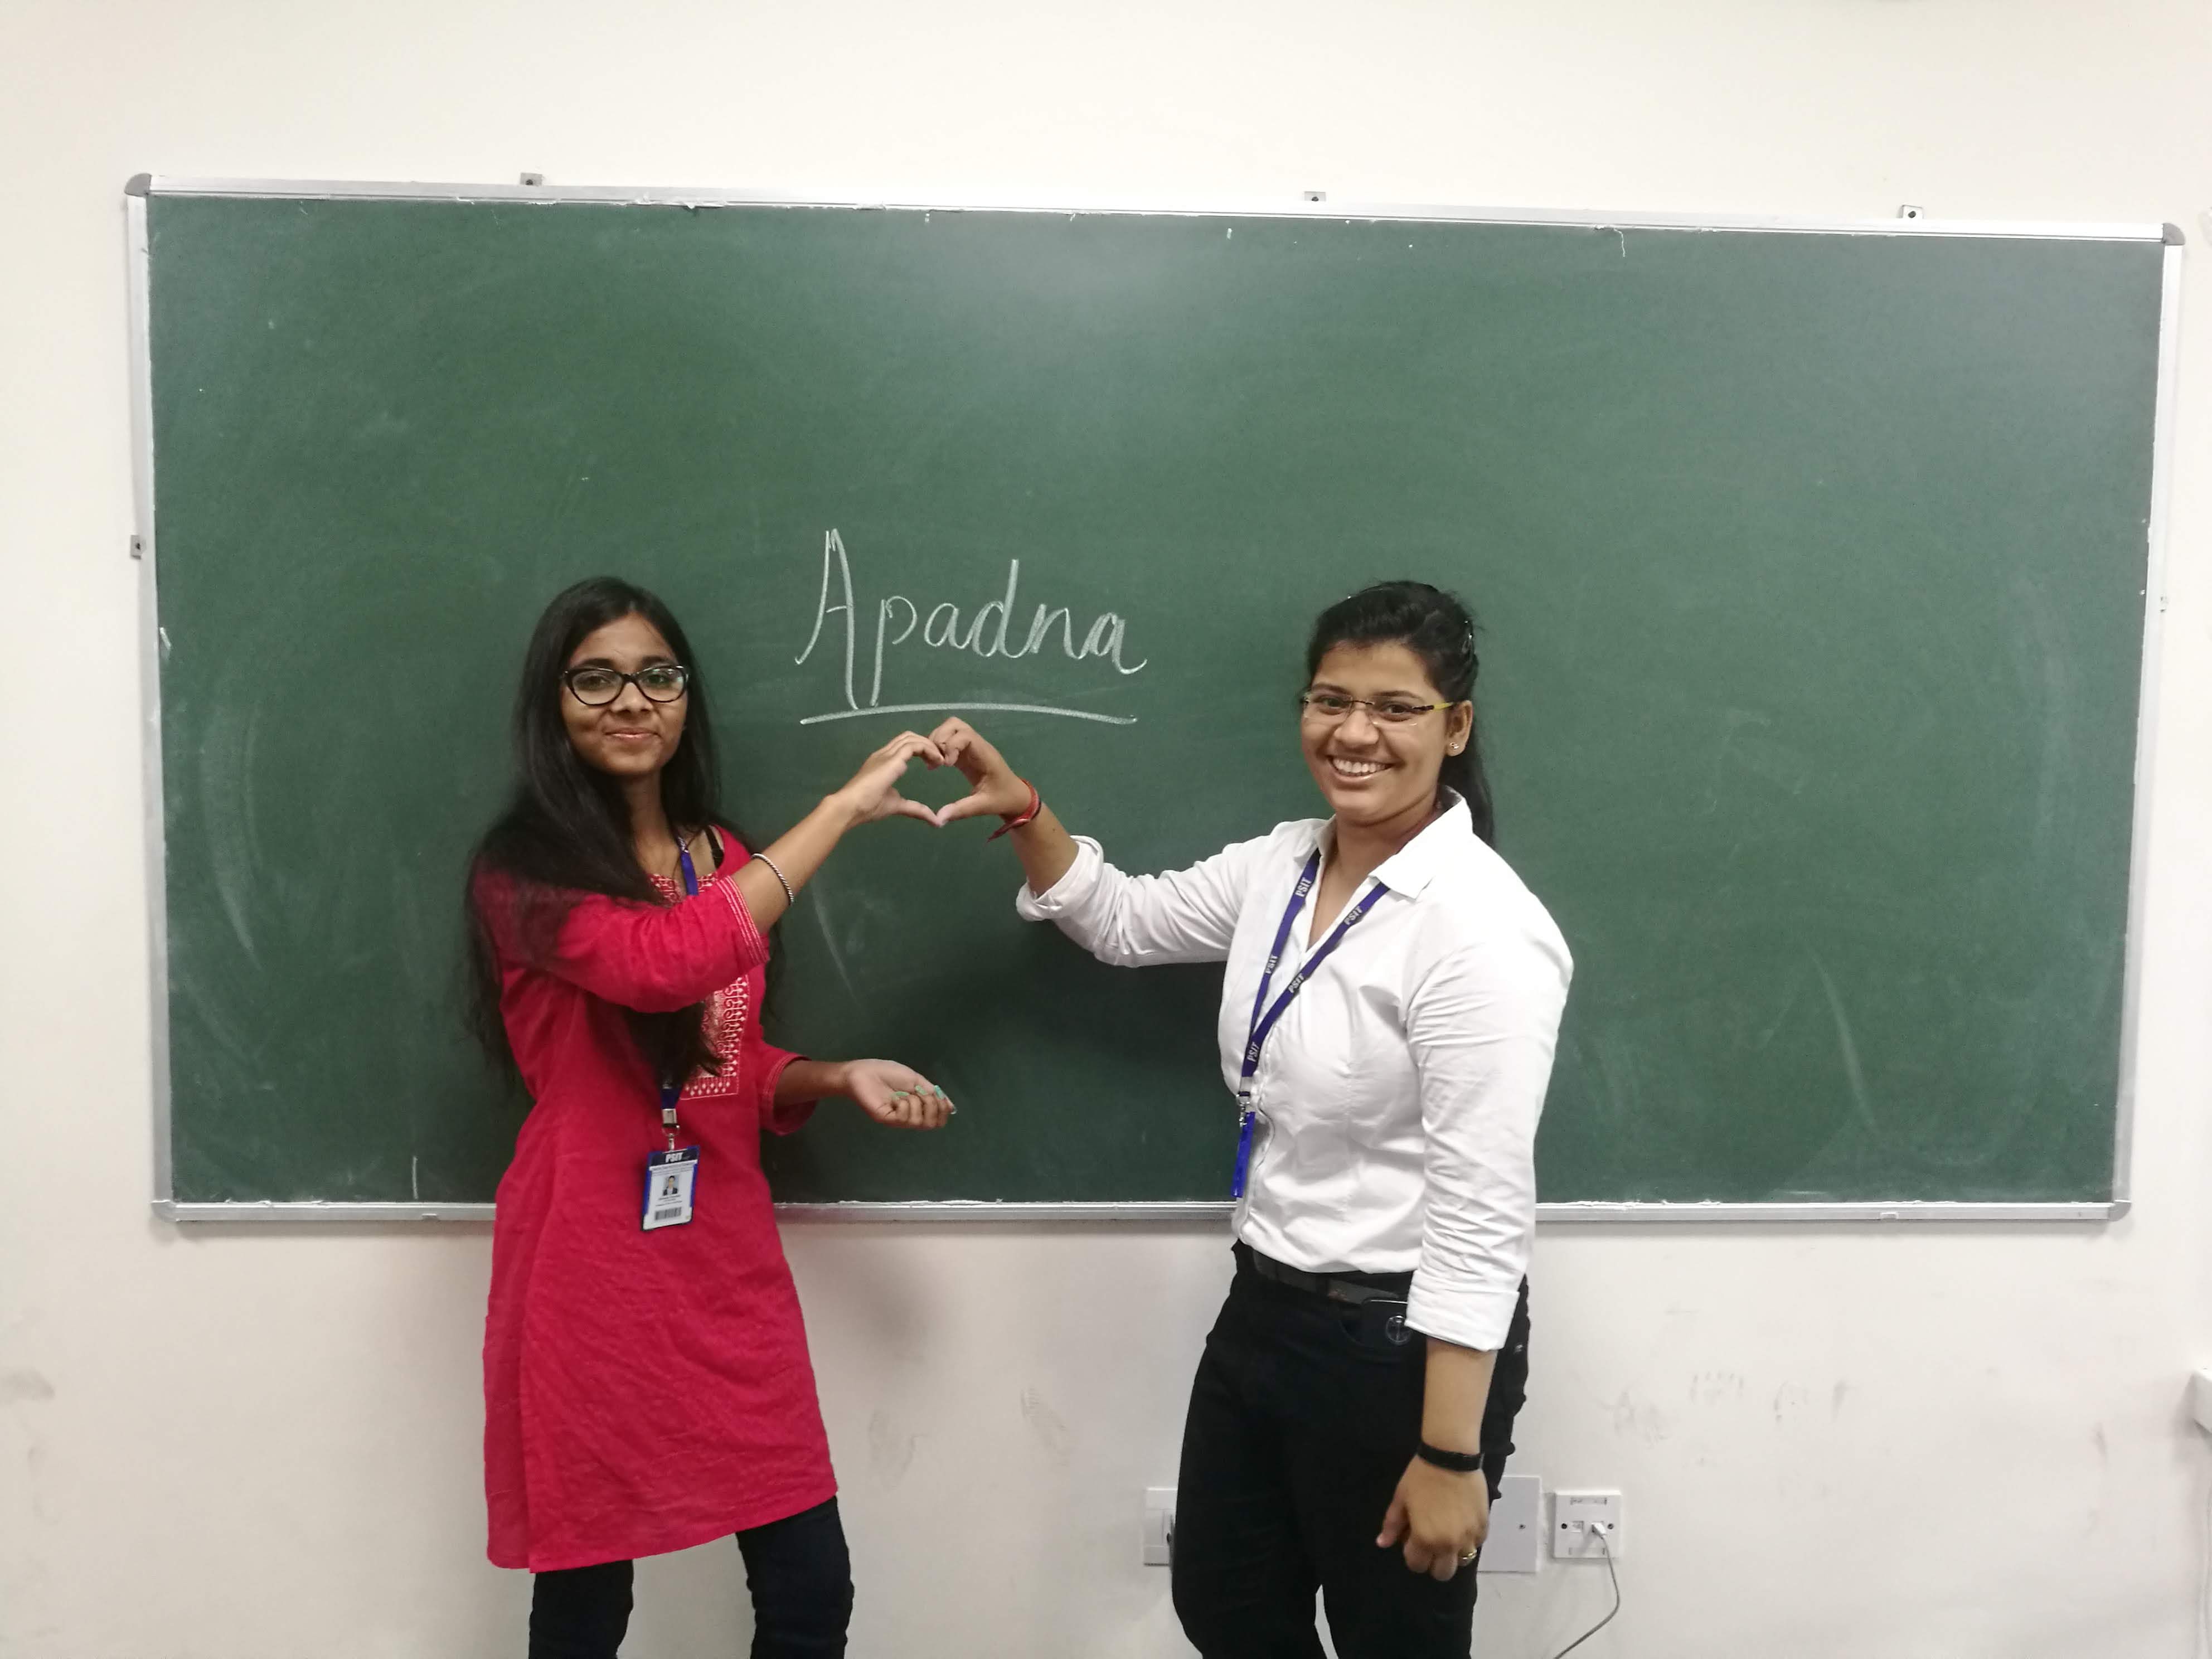 Apadna
PSIT
PSIT
PSIT
PSIT
PSIT
PSIT